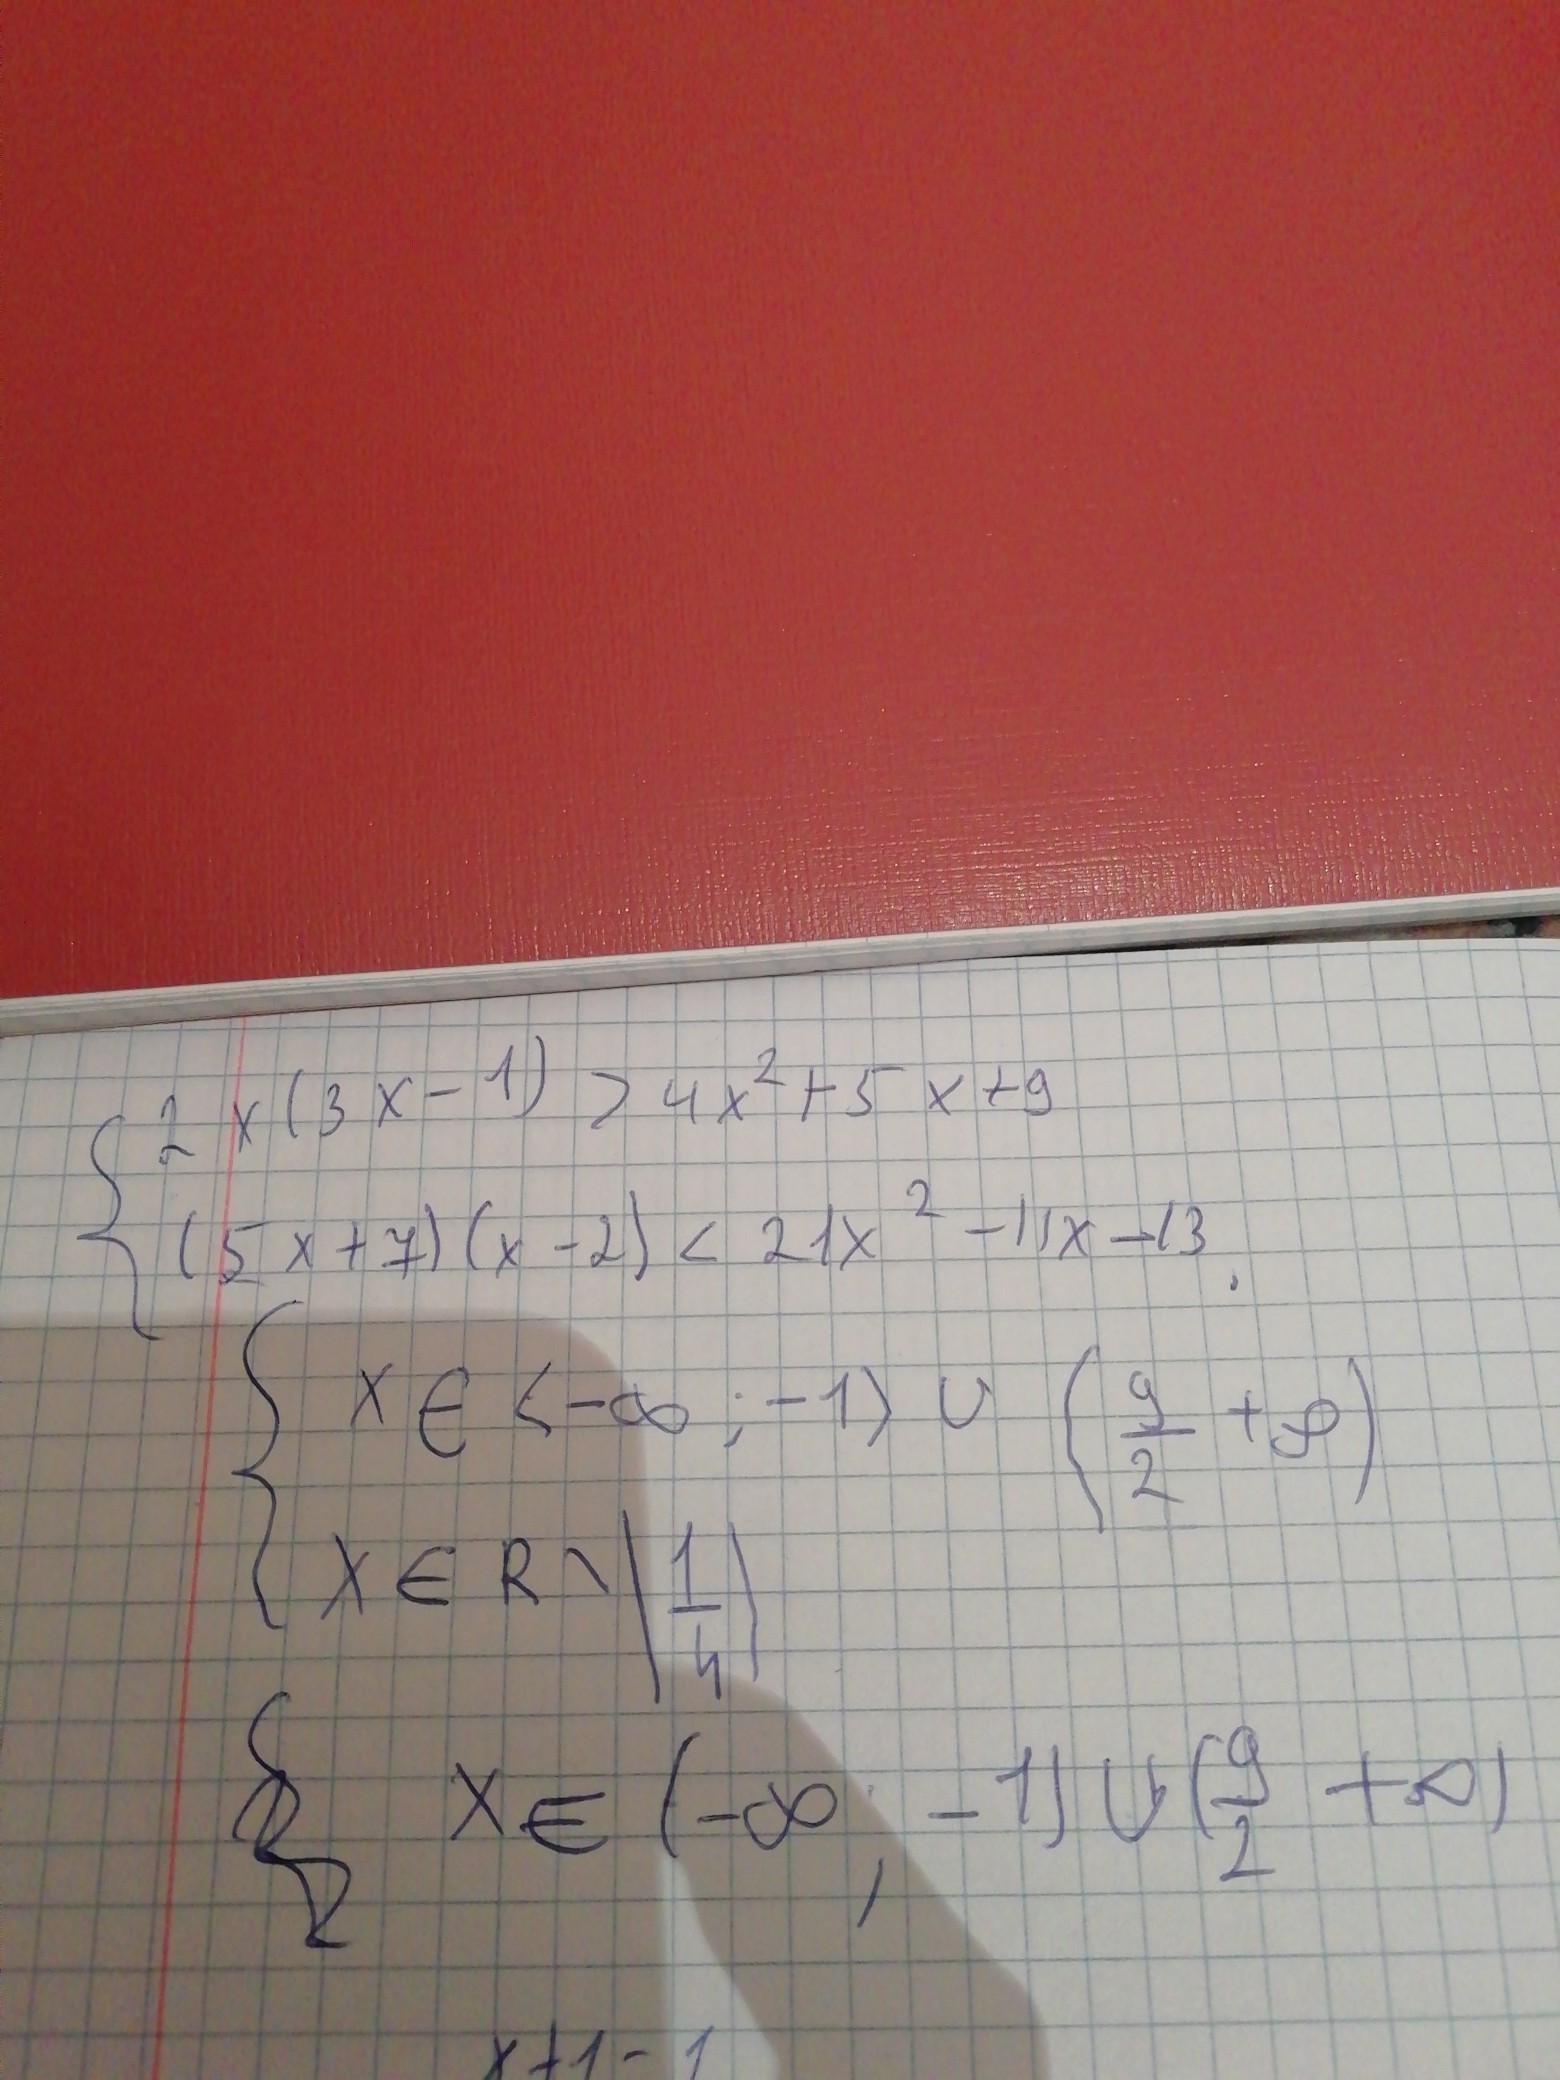 2x(3x-1) > 4x²+5x+9
(5x+7)(x-2) < 21x²-11x-13.
x∈<-∞;-1) ∪ (9/2 +∞)
x∈R \ {1/4}
x∈(-∞; -1) ∪ (9/2 +∞)
x+1-1